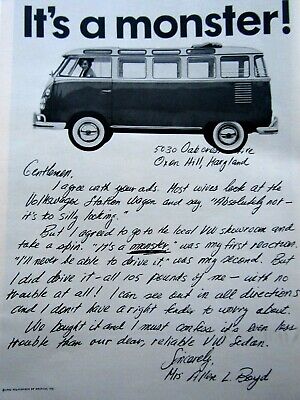 It's a monster!
5030 Oakcrest Drive
Oxon Hill, Maryland
Gentlemen,
I agree with your ads. Most wives look at the
Volkswagen Station Wagon and say, "Absolutely not—
it's to silly looking."
But I agreed to go to the local VW showroom and
take a spin. "It's a monster" was my first reaction.
"I'll never be able to drive it" was my second. But
I did drive it—all 105 pounds of me—with no
trouble at all! I can see out in all directions
and I don't have a right fender to worry about.
We bought it and I must confess it's even less
trouble than our dear, reliable VW Sedan.
Sincerely,
Mrs L. Boyd
VOLKSWAGEN OF AMERICA, INC.